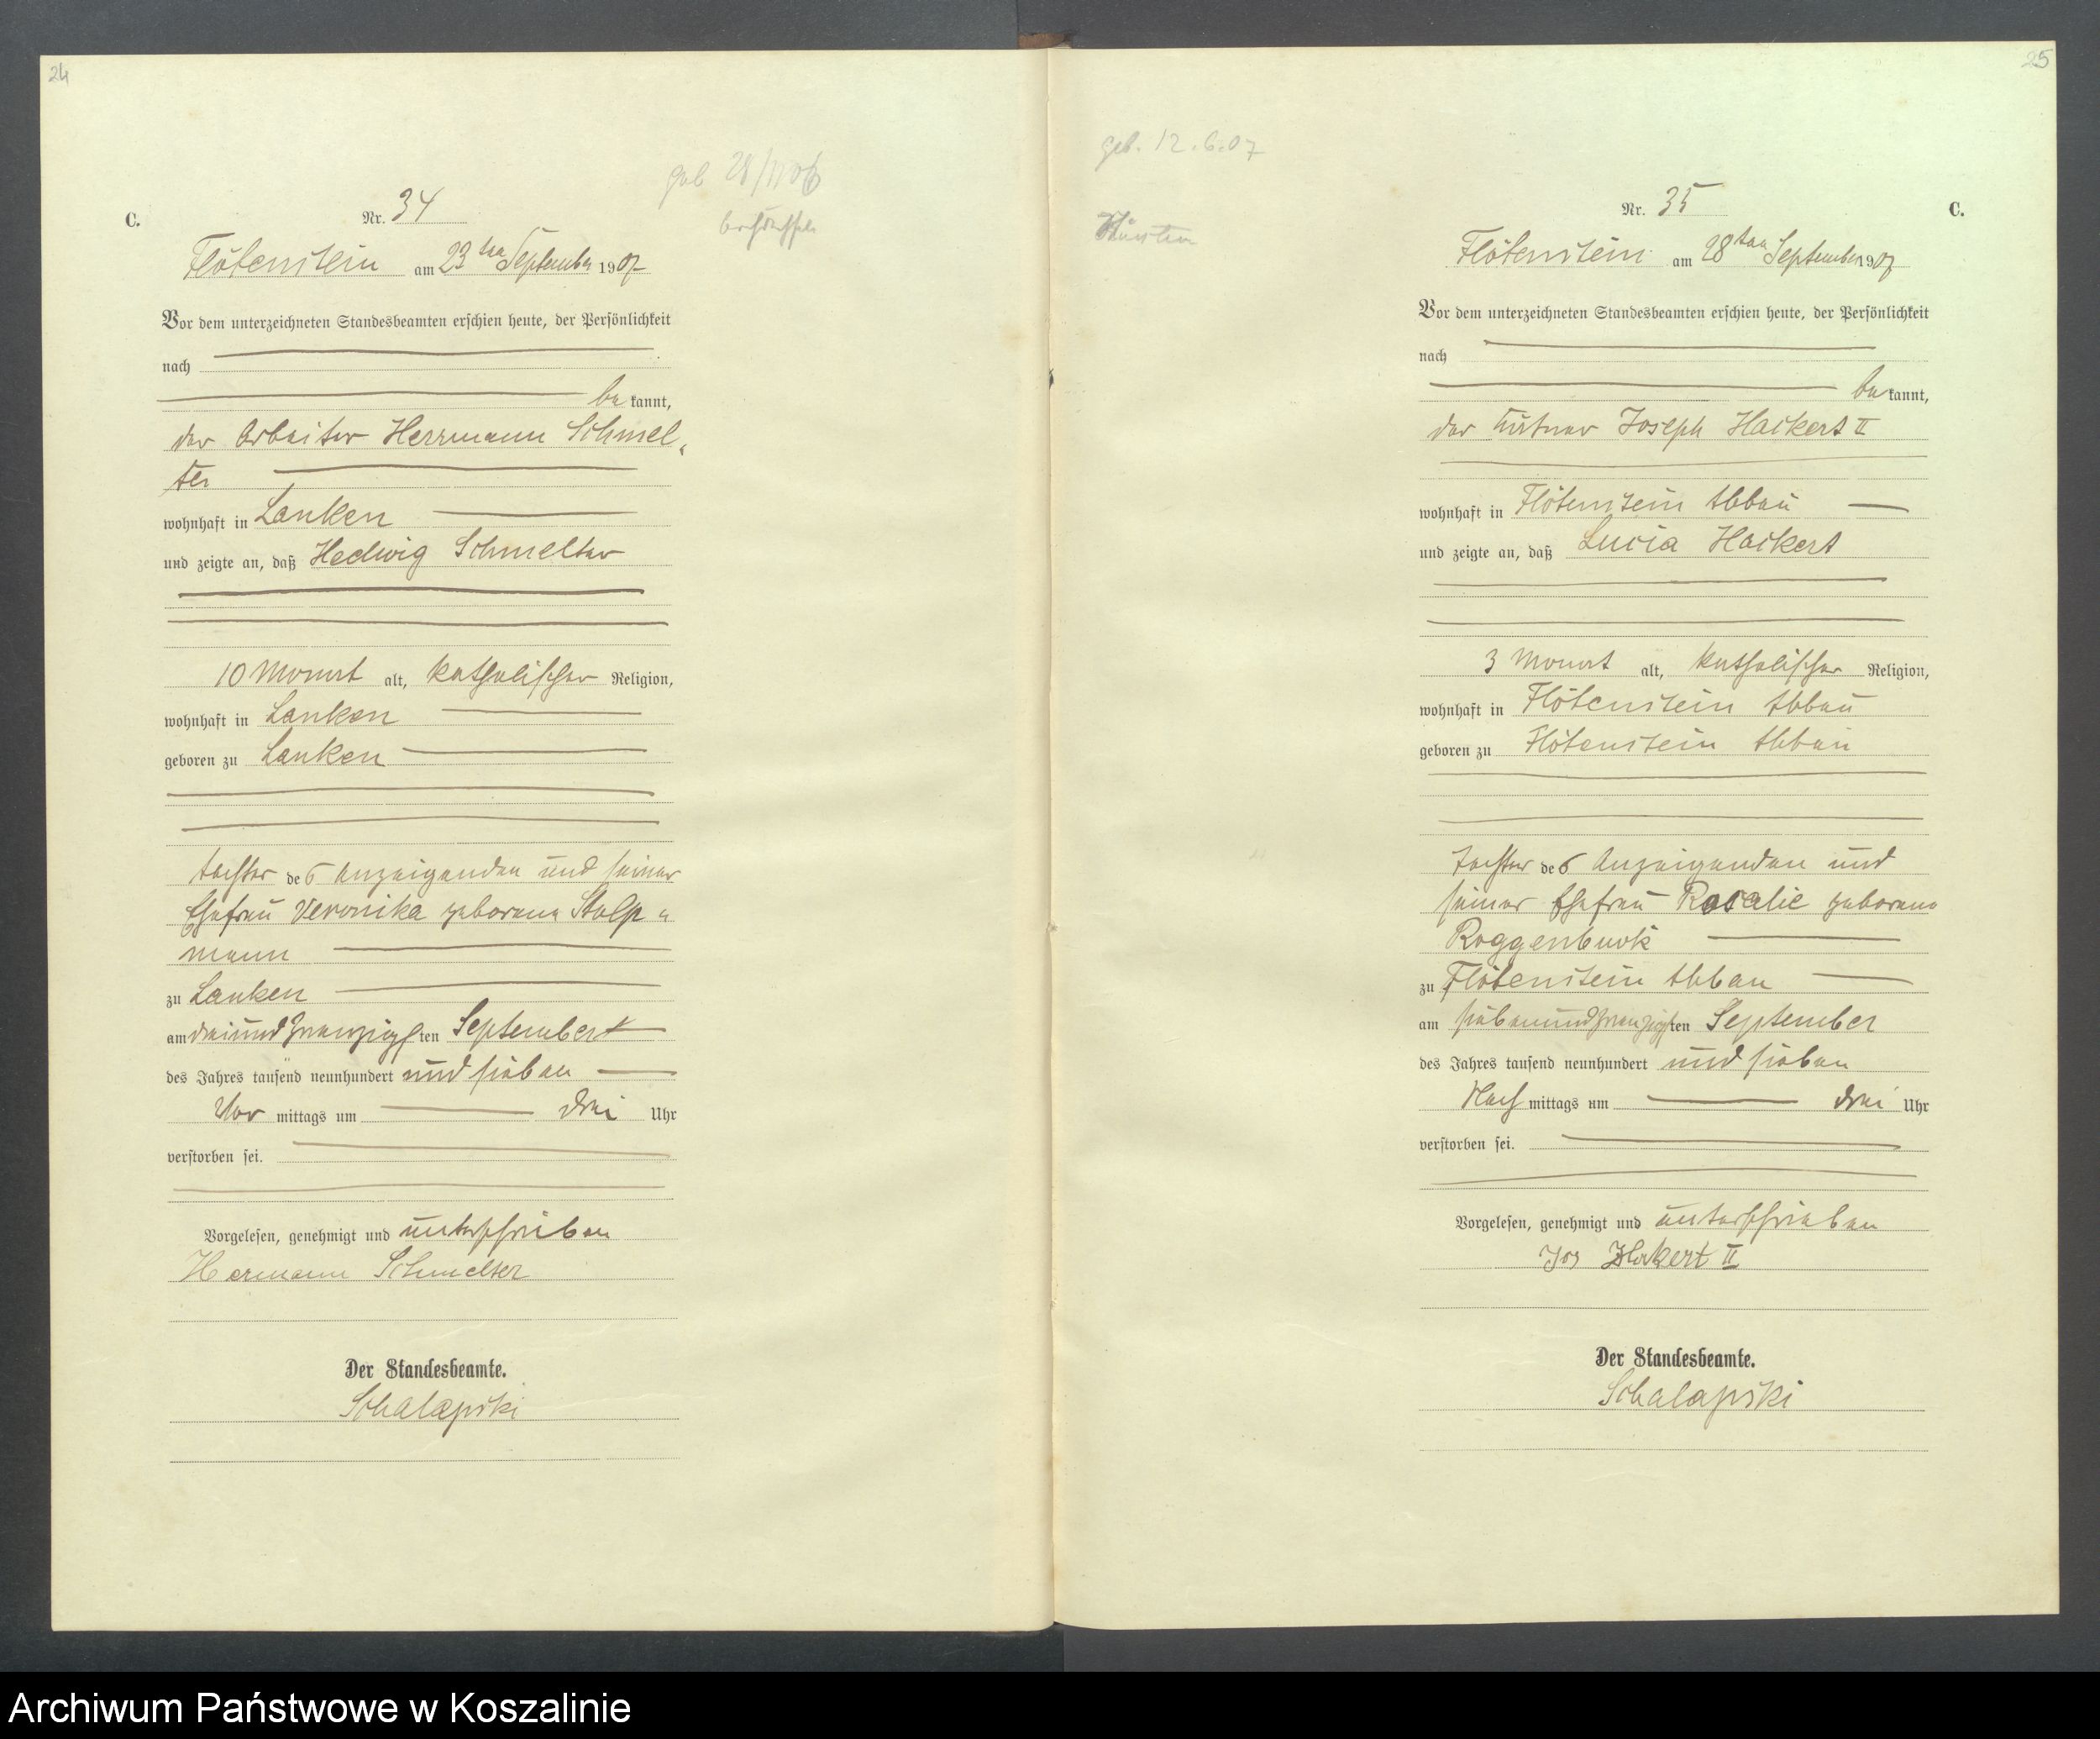 24
geb 28/11 06
C.
Nr. 34
Flötenstein am 23ten September 1907
Vor dem unterzeichneten Standesbeamten erschien heute, der Persönlichkeit
nach
be kannt,
der Arbeiter Herrmann Schmel-
ter
wohnhaft in Lanken
und zeigte an, daß Hedwig Schmelter
10 Monat alt, katholischer Religion,
wohnhaft in Lanken
geboren zu Lanken
Tochter des Anzeigenden und seiner
Ehefrau Veronika geborene Stolp-
mann
zu Lanken
am dreiundzwanzigsten September
des Jahres tausend neunhundert und sieben
Vor mittags um drei Uhr
verstorben sei.
Vorgelesen, genehmigt und unterschrieben
Hermann Schmelter
Der Standesbeamte.
Schalapski
25
geb. 12.6.07
Nr. 35
C.
Flötenstein am 28ten September 1907
Vor dem unterzeichneten Standesbeamten erschien heute, der Persönlichkeit
nach
be kannt,
der Joseph Hackert II
wohnhaft in Flötenstein Abbau
und zeigte an, daß Lucia Hackert
3 Monat alt, katholischer Religion,
wohnhaft in Flötenstein Abbau
geboren zu Flötenstein Abbau
Tochter des Anzeigenden und
seiner Ehefrau Rosalie geborene
Roggenbuck
zu Flötenstein Abbau
am siebenundzwanzigsten September
des Jahres tausend neunhundert und sieben
Nach mittags um drei Uhr
verstorben sei.
Vorgelesen, genehmigt und unterschrieben
Jos Hackert II
Der Standesbeamte.
Schalapski
Archiwum Państwowe w Koszalinie